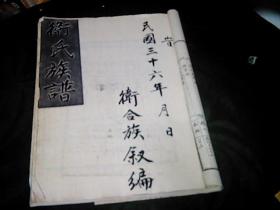 旹
民國三十六年 月 日
衛合族叙編
衛氏族譜